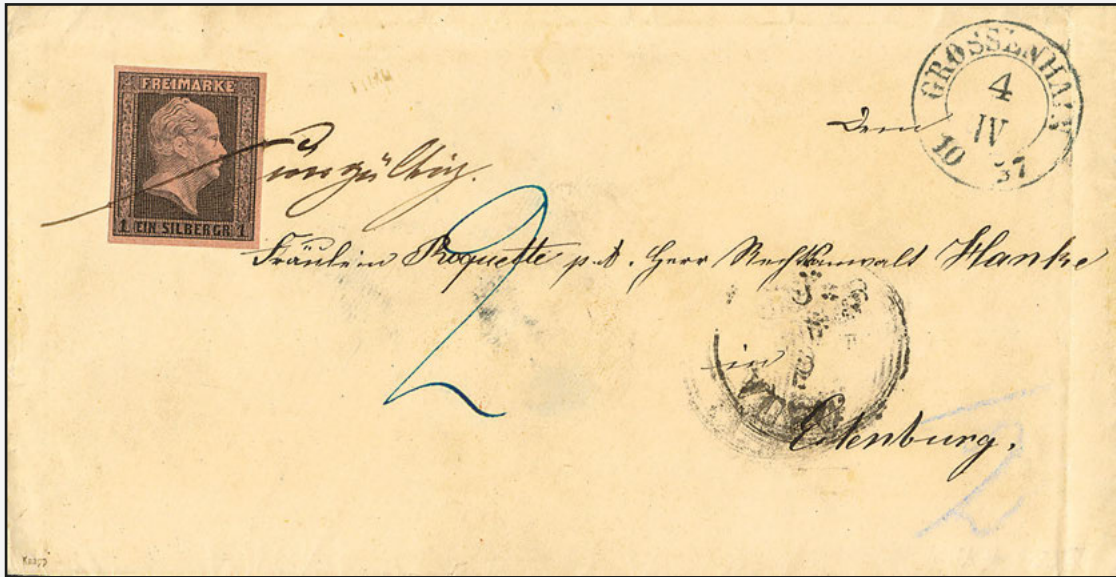 FREIMARKE
1 EIN SILBERGR 1
ungültig.
GROSSENHAIN
4
IV
10 57
Dem
2
Fräulein Roquette p. A. Herr Rechtsanwalt Hanke
in
Eilenburg.
Knapp